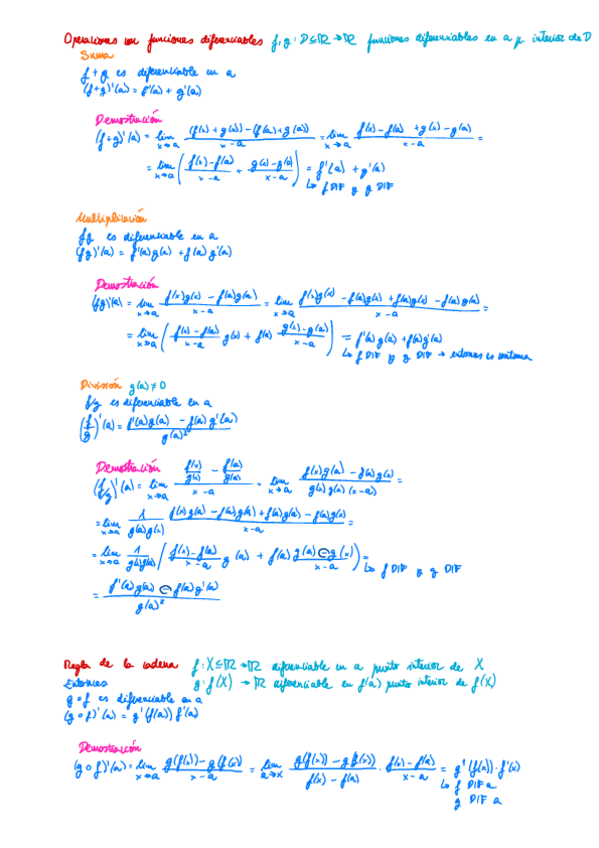 Operaciones con funciones diferenciables f, g : D ⊆ ℝ → ℝ funciones diferenciables en a p. interior de D
Suma
f + g es diferenciable en a
(f+g)'(a) = f'(a) + g'(a)
Demostración
(f+g)'(a) = lim x→a ((f(x)+g(x)) − (f(a)+g(a)))/(x−a) = lim x→a (f(x)−f(a) + g(x)−g(a))/(x−a) =
= lim x→a ( (f(x)−f(a))/(x−a) + (g(x)−g(a))/(x−a) ) = f'(a) + g'(a)
↳ f DIF y g DIF
Multiplicación
fg es diferenciable en a
(fg)'(a) = f'(a)g(a) + f(a)g'(a)
Demostración
(fg)'(a) = lim x→a (f(x)g(x) − f(a)g(a))/(x−a) = lim x→a (f(x)g(x) − f(a)g(x) + f(a)g(x) − f(a)g(a))/(x−a) =
= lim x→a ( (f(x)−f(a))/(x−a) g(x) + f(a) (g(x)−g(a))/(x−a) ) = f'(a)g(a) + f(a)g'(a)
↳ f DIF y g DIF → entonces es continua
División g(a) ≠ 0
f/g es diferenciable en a
(f/g)'(a) = (f'(a)g(a) − f(a)g'(a))/g(a)²
Demostración
(f/g)'(a) = lim x→a (f(x)/g(x) − f(a)/g(a))/(x−a) = lim x→a (f(x)g(a) − f(a)g(x))/(g(x)g(a)(x−a)) =
= lim x→a 1/(g(a)g(x)) (f(x)g(a) − f(a)g(a) + f(a)g(a) − f(a)g(x))/(x−a) =
= lim x→a 1/(g(x)g(a)) ( (f(x)−f(a))/(x−a) g(a) + f(a) (g(a) ⊖ g(x))/(x−a) ) =
↳ f DIF y g DIF
= (f'(a)g(a) ⊖ f(a)g'(a))/g(a)²
Regla de la cadena f : X ⊆ ℝ → ℝ diferenciable en a punto interior de X
Entonces g : f(X) → ℝ diferenciable en f(a) punto interior de f(X)
g∘f es diferenciable en a
(g∘f)'(a) = g'(f(a)) f'(a)
Demostración
(g∘f)'(a) = lim x→a (g(f(x)) − g(f(a)))/(x−a) = lim a→x (g(f(x)) − g(f(x)))/(f(x) − f(a)) · (f(x) − f(a))/(x−a) = g'(f(x)) · f'(x)
↳ f DIF a
g DIF a